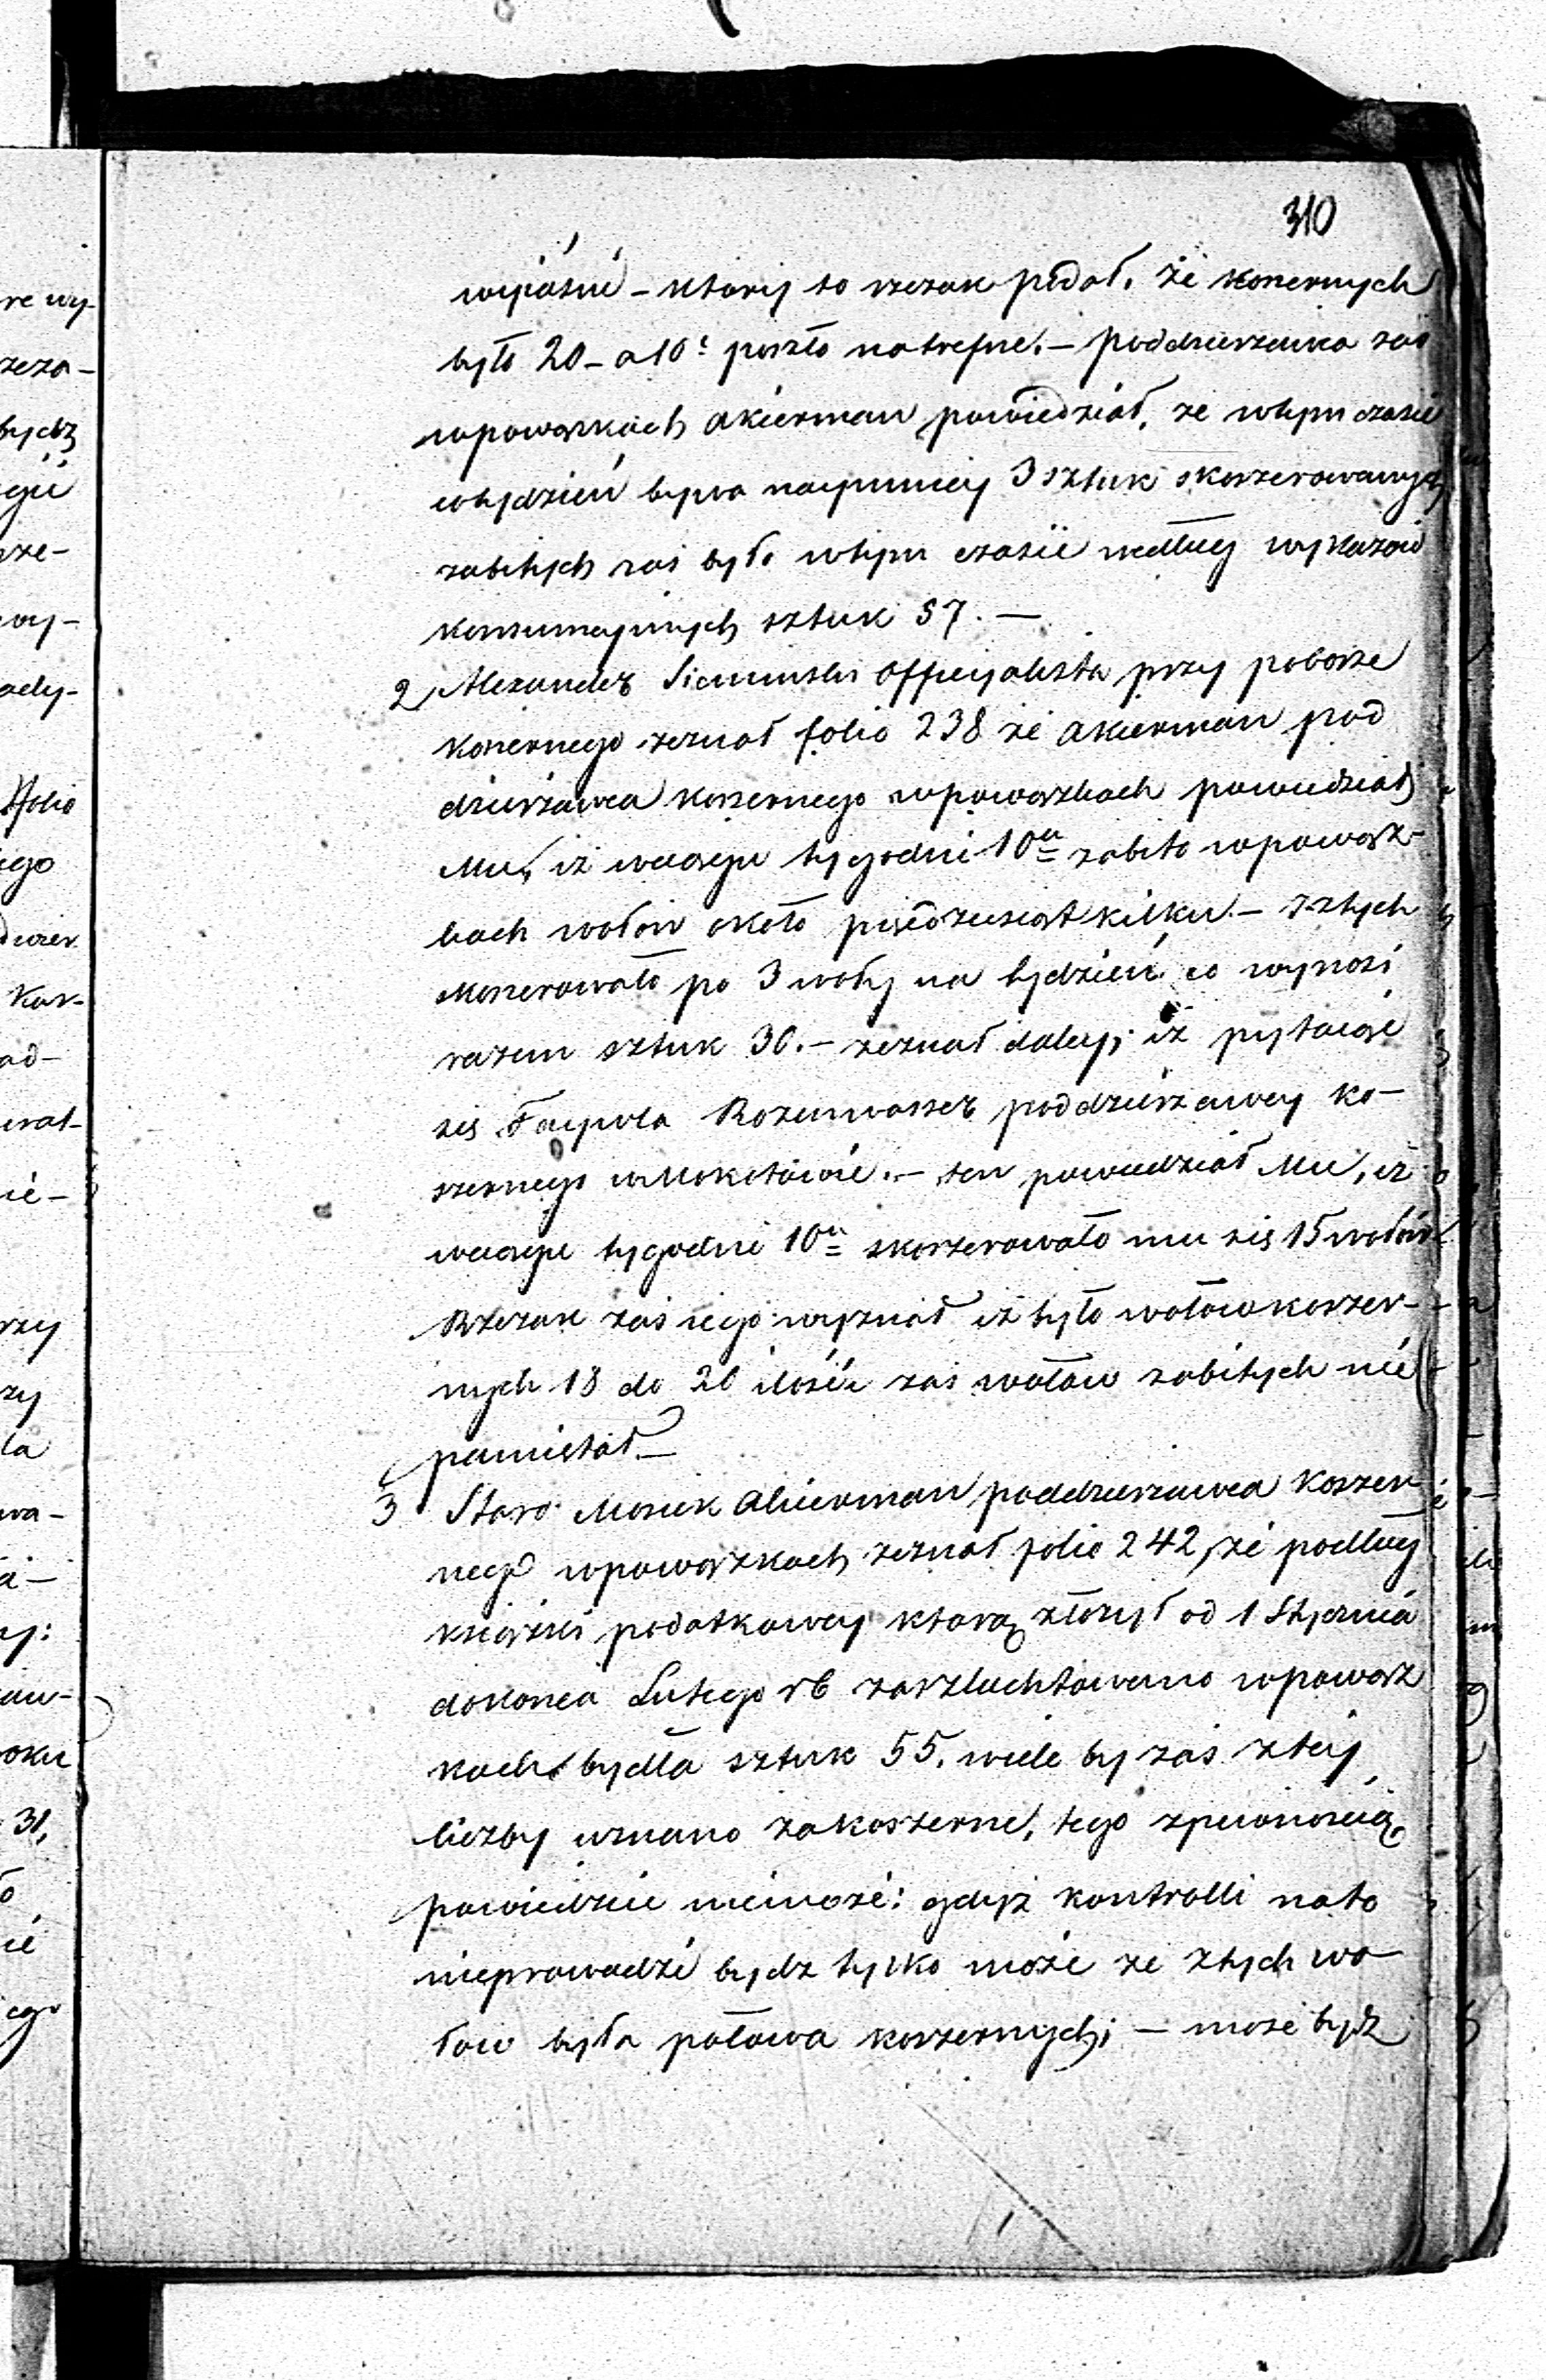 310
wyiaśni – który to rzezak podał, że koszernych
było 20 – a 10: poszło na trefne. – poddzierzawca zaś
wpowązkach Akierman powiedział, że wtym czasie
wtydzień bywa naymniey 3 sztuk skoszerowanych
zabitych zaś było wtym czasie według wykazów
konsumcyinych sztuk 57. –
2 Alexander officyalista przy poborze
koszernego zeznał folio 238 że Akierman pod
dzierżawca koszernego wpowązkach powiedział
Mu, iż wciągu tygodni 10u zabito wpowąz-
kach wołów około pięćdziesiąt kilku. – z tych
koszerowało po 3 woły na tydzień, co wynosi
razem sztuk 30. – zeznał daley, iż pytaiąc
się Faywla Rozenwasser poddzierzawcy ko-
szernego wMokotowie. – ten powiedział Mu, iż
wciągu tygodni 10u skoszerowało mu się 15 wołów
Rzezak zaś iego wyznał iż było wołów koszer-
nych 18 do 20 ilości zaś wołów zabitych nie
pamiętał –
3 Staro: Mosiek Akierman poddzierzawca koszer
nego wpowązkach zeznał folio 242, że podług
książki podatkowey którą złożył od 1 Stycznia
dokońca Lutego rb zaszlachtowano wpowąz
kach bydła sztuk 55. wiele by zaś ztey
liczby uznano zakoszerne, tego zpewnością
powiedzieć niemoże: gdyż kontrolli nato
nieprowadzi bydz tylko może że ztych wo-
łów była połowa koszernych; – może bydz